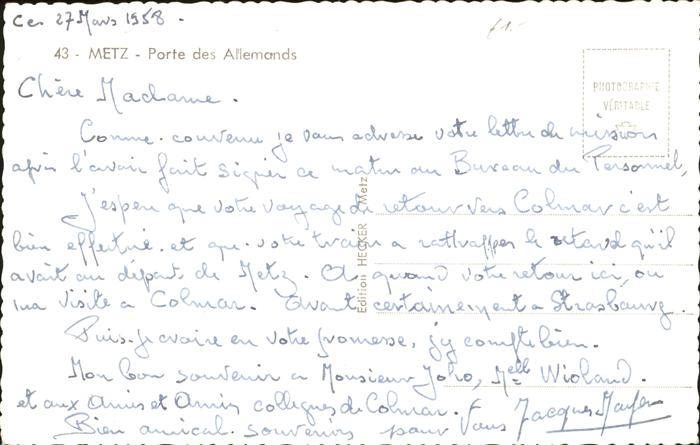 Ce 27 Mars 1958.
£1.-
43 - METZ - Porte des Allemands
PHOTOGRAPHIE
VÉRITABLE
Chère Madame.
Comme convenu je vous adresse votre lettre de mission
après l'avoir fait signer ce matin au Bureau du Personnel,
J'espère que votre voyage de retour vers Colmar c'est
bien effectué. et que votre train a rattrapper le retard qu'il
avait au départ de Metz. A quand votre retour ici, ou
ma visite a Colmar. Avant certainement a Strasbourg.
Puis-je croire en votre promesse, j'y compte bien.
Mon bon souvenir a Monsieur Joho, Melle Wioland.
et aux Amis et Amies collègues de Colmar.
Bien amical souvenirs pour Vous Jacques
Edition HECKER Metz